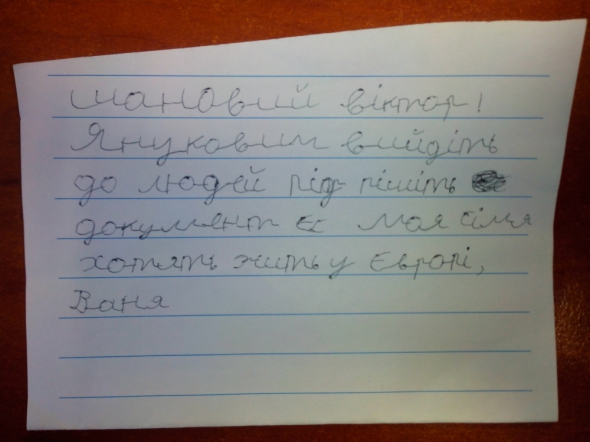 шановий віктор!
Янукович вийдіть
до людей підпішіть
документ ЄС моя сімя
хотять жить у Європі,
Ваня